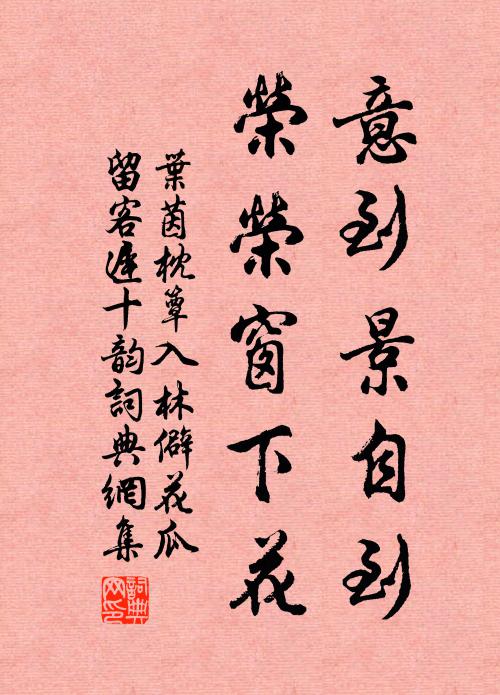 意到景自到
榮榮窗下花
葉茵枕簟入林僻花瓜
留客遲十韵詞典網集
詞典
网印